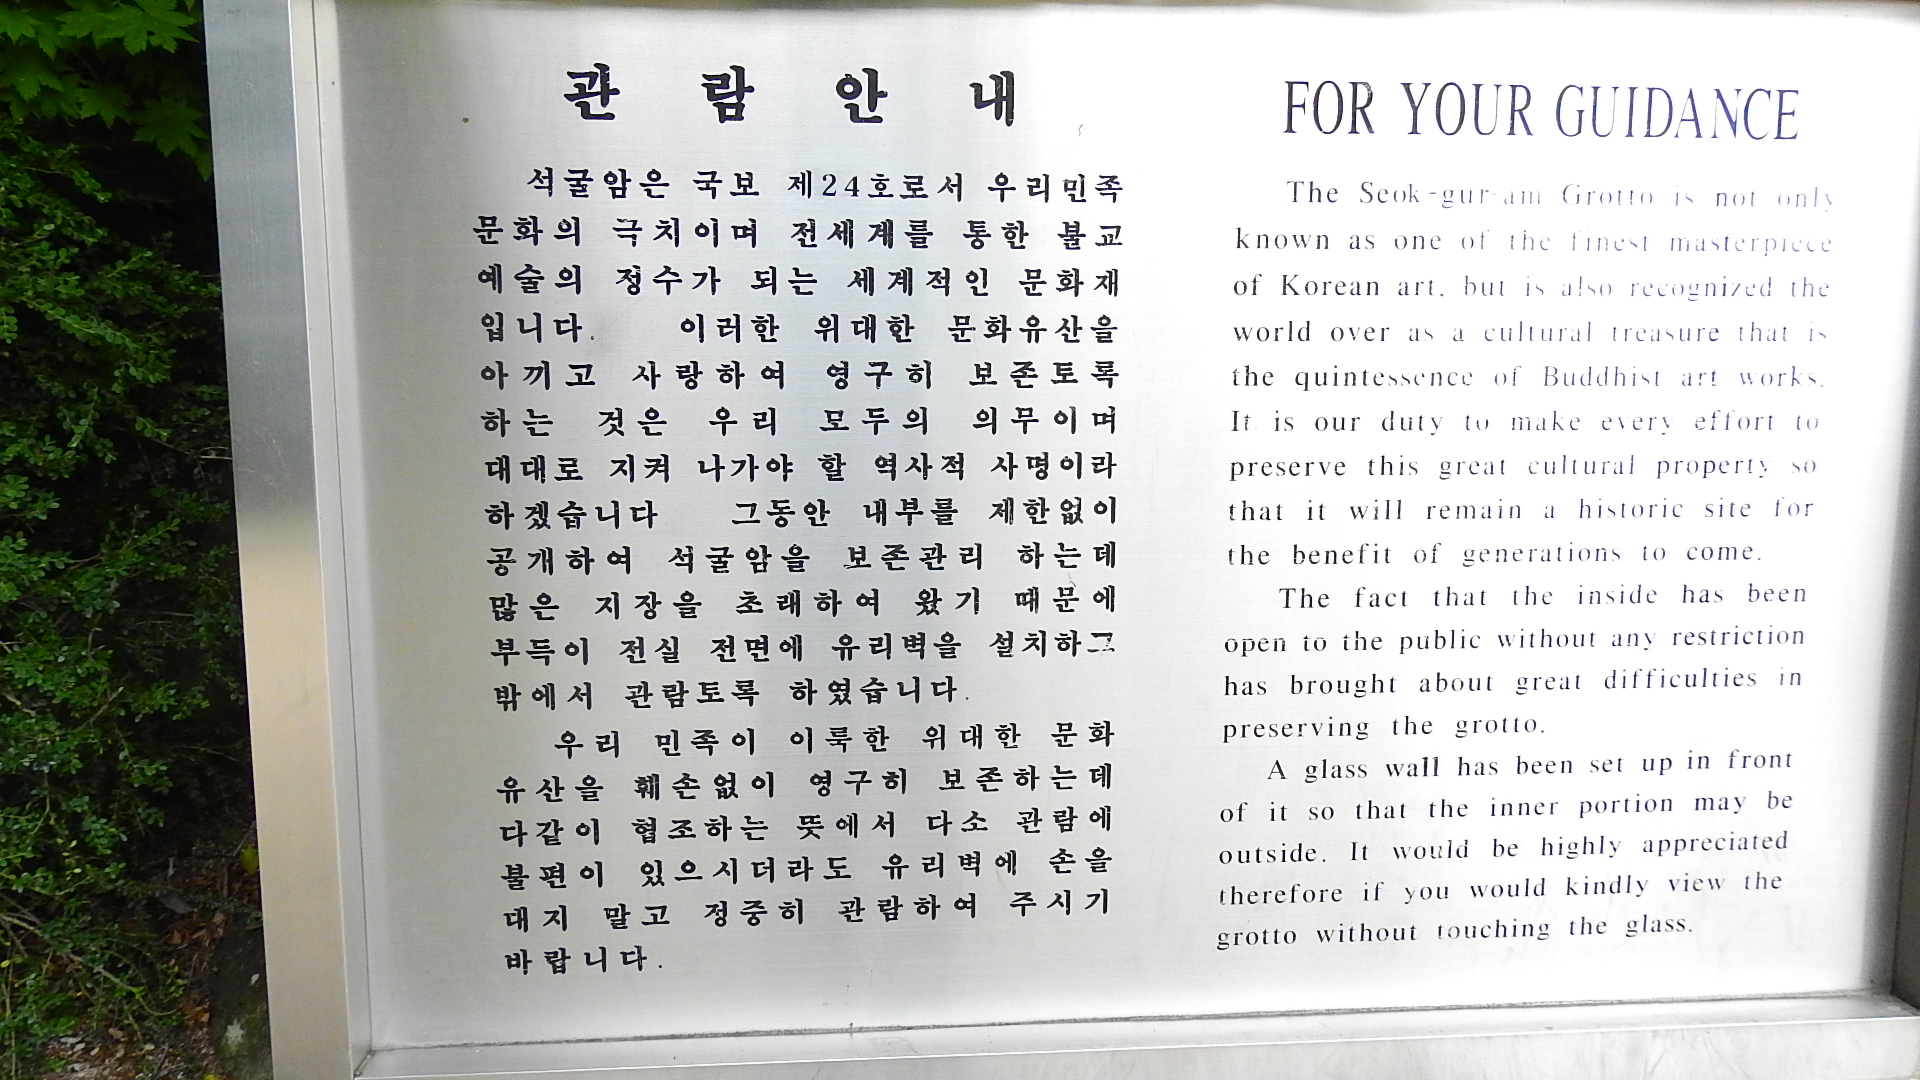 관 람 안 내
석굴암은 국보 제24호로서 우리민족
문화의 극치이며 전세계를 통한 불교
예술의 정수가 되는 세계적인 문화재
입니다. 이러한 위대한 문화유산을
아끼고 사랑하여 영구히 보존토록
하는 것은 우리 모두의 의무이며
대대로 지켜 나가야 할 역사적 사명이라
하겠습니다 그동안 내부를 제한없이
공개하여 석굴암을 보존관리 하는데
많은 지장을 초래하여 왔기 때문에
부득이 전실 전면에 유리벽을 설치하고
밖에서 관람토록 하였습니다.
우리 민족이 이룩한 위대한 문화
유산을 훼손없이 영구히 보존하는데
다같이 협조하는 뜻에서 다소 관람에
불편이 있으시더라도 유리벽에 손을
대지 말고 정중히 관람하여 주시기
바랍니다.
FOR YOUR GUIDANCE
The Seok-gur-am Grotto is not only
known as one of the finest masterpiece
of Korean art, but is also recognized the
world over as a cultural treasure that is
the quintessence of Buddhist art works.
It is our duty to make every effort to
preserve this great cultural property so
that it will remain a historic site for
the benefit of generations to come.
The fact that the inside has been
open to the public without any restriction
has brought about great difficulties in
preserving the grotto.
A glass wall has been set up in front
of it so that the inner portion may be
outside. It would be highly appreciated
therefore if you would kindly view the
grotto without touching the glass.